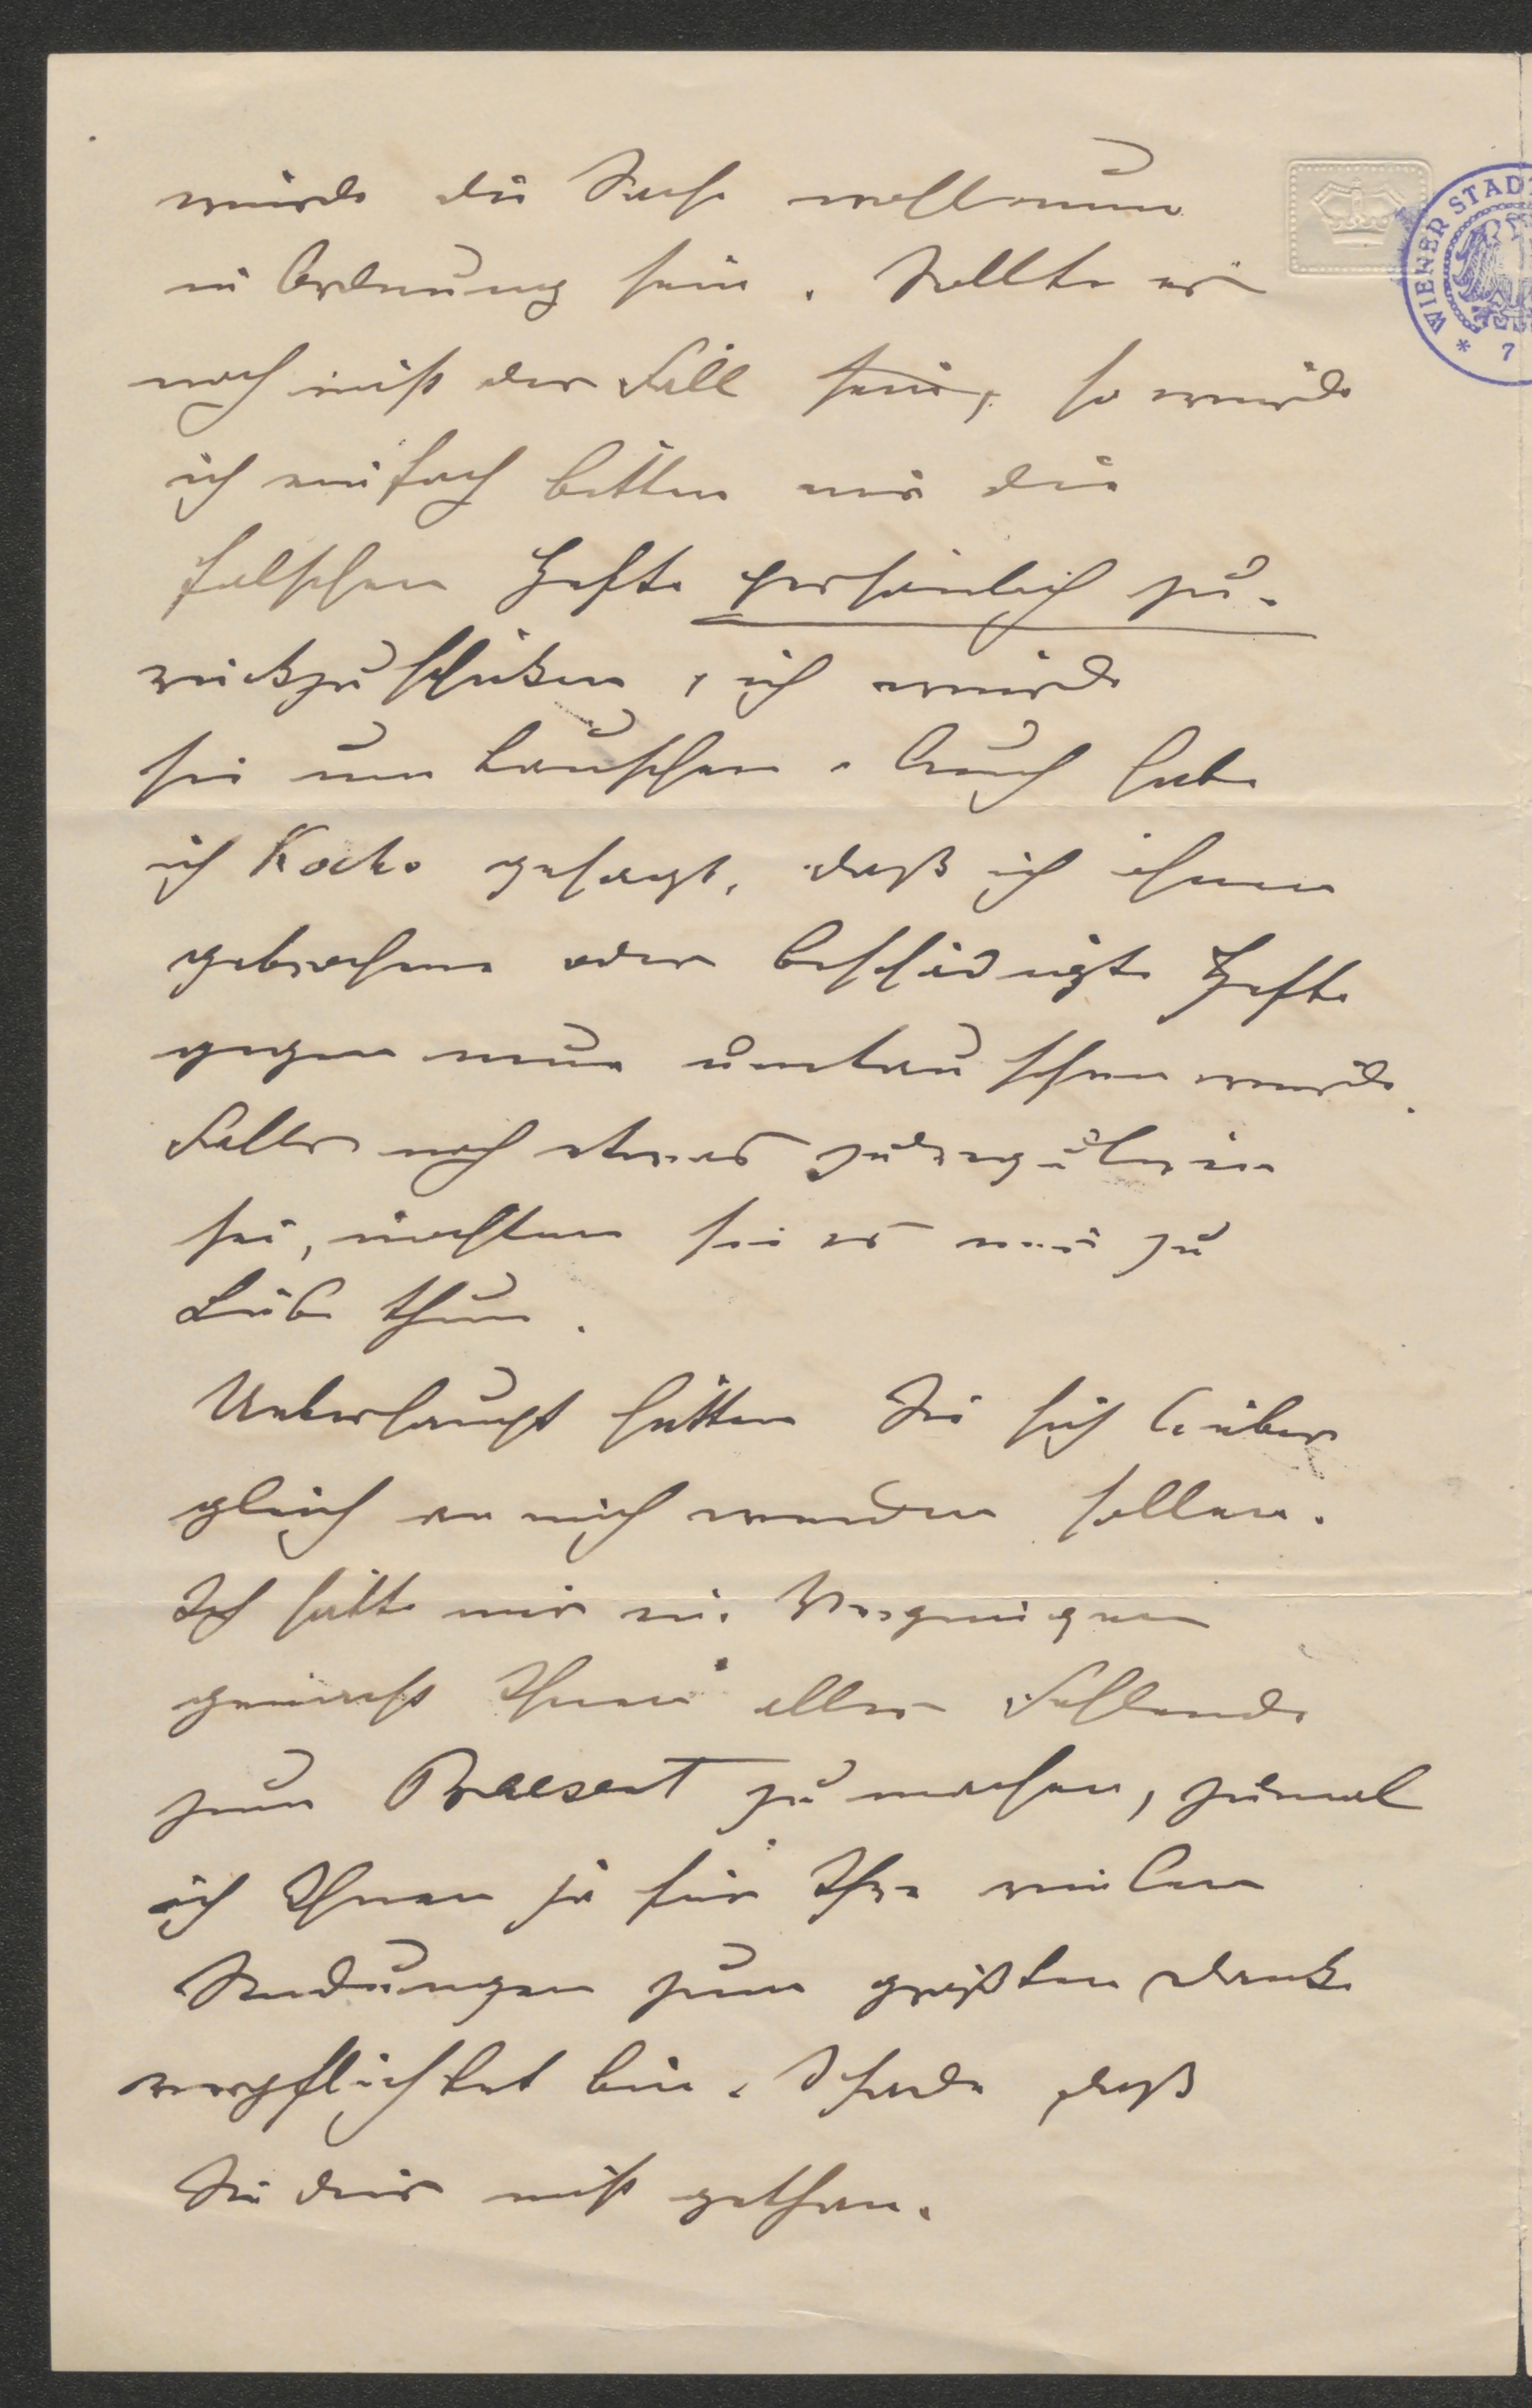 würde die Sache wohl nun
in Ordnung sein. Sollte es
noch nicht der Fall sein, so würde
ich einfach bitten mir die
falschen Hefte persönlich zu-
rückzuschicken, ich würde
sie umtauschen. Auch habe
ich Kocko gesagt, daß ich ihnen
gebrochene oder beschädigte Hefte
gegen neue umtauschen würde.
Falls noch etwas zu reguliren
sei, möchten sie es mir zu
Liebe thun.
Ueberhaupt hätten Sie sich lieber
gleich an mich wenden sollen.
Ich hätte mir ein Vergnügen
gemacht Ihnen alles Fehlende
zum Praesent zu machen, zumal
ich Ihnen ja für Ihre vielen
Sendungen zum größten Danke
verpflichtet bin. Schade, daß
Sie dies nicht gethan.
WIENER STAD
* 7